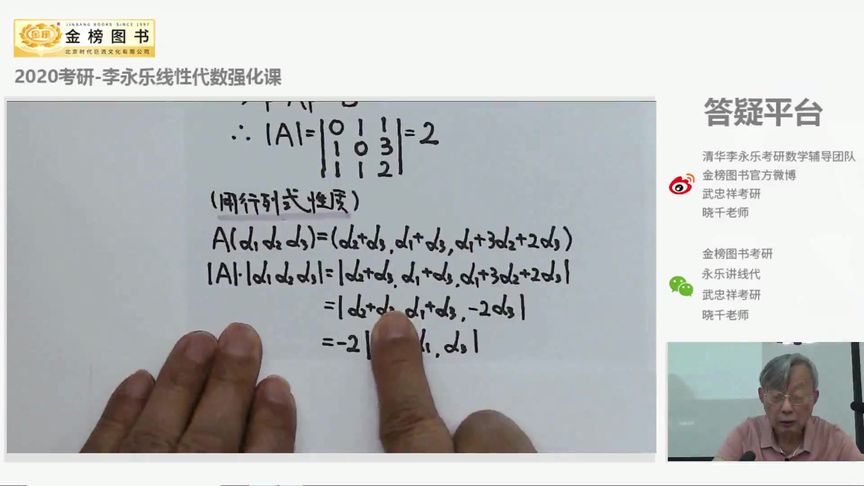 JINBANG BOOKS SINCE 1997
金榜
金榜图书
北京时代巨流文化有限公司
2020考研-李永乐线性代数强化课
∴ |A|=|0 1 1
1 0 3
1 1 2|=2
(用行列式性质)
A(α1 α2 α3)=(α2+α3, α1+α3, α1+3α2+2α3)
|A|·|α1 α2 α3|=|α2+α3, α1+α3, α1+3α2+2α3|
=|α2+α3, α1+α3, -2α3|
=-2| α1, α3|
答疑平台
清华李永乐考研数学辅导团队
金榜图书官方微博
武忠祥考研
晓千老师
金榜图书考研
永乐讲线代
武忠祥考研
晓千老师